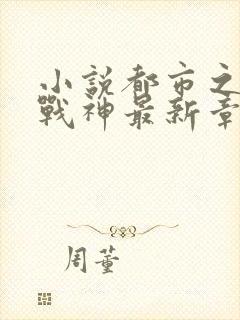 小説都市之
戰神最新章
周董